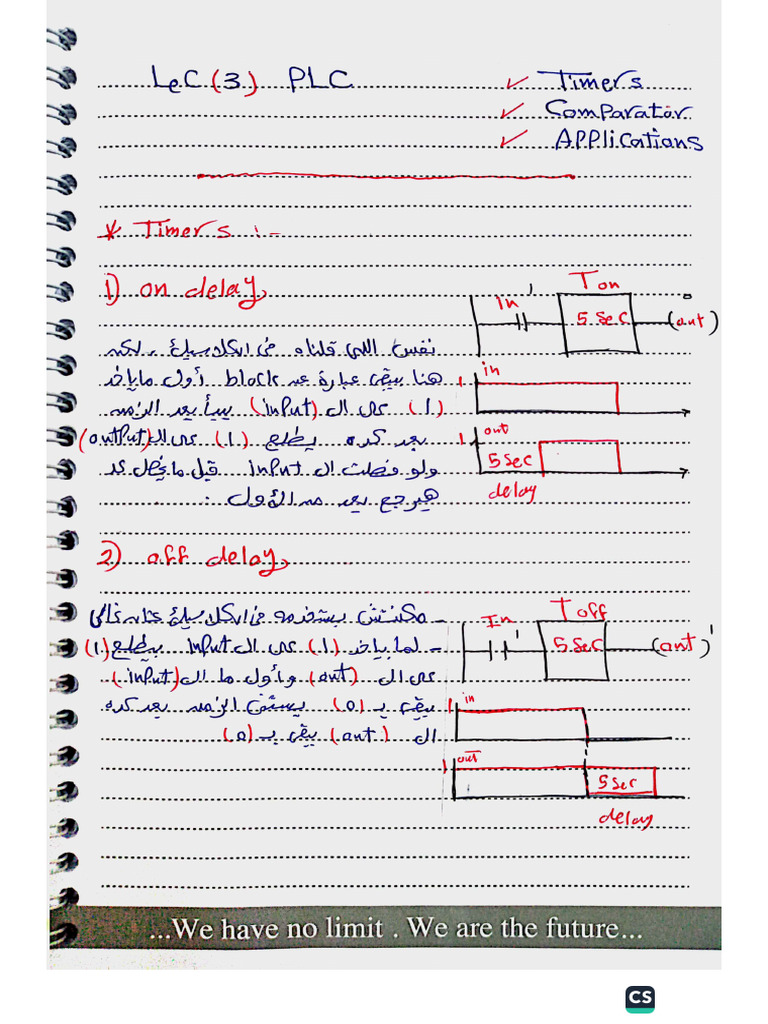 Lec (3) PLC
✓ Timers
✓ Comparator
✓ Applications
* Timers :-
1) on delay
نفس اللي قلناه في الكلاسيك . لكن
هنا بيبقى عبارة عن block أول ما ياخد
(1) على ال (input) يبدأ يعد الزمن
بعد كده يطلع (1) على ال (output)
ولو فصلت ال input قبل ما يخلص عد
هيرجع يعد من الأول .
T on
in
5 sec
(out)
1 in
1 out
5 sec
delay
2) off delay
- مكنتش بستخدمه في الكلاسيك عشانه غالي
- لما ياخد (1) على ال input بيطلع (1)
على ال (out) وأول ما ال (input)
يبقى ب (0) يستنى الزمن بعد كده
ال (out) يبقى ب (0)
T off
In 1
5 sec
(out) 1
1 in
1 out
5 sec
delay
...We have no limit . We are the future...
CS